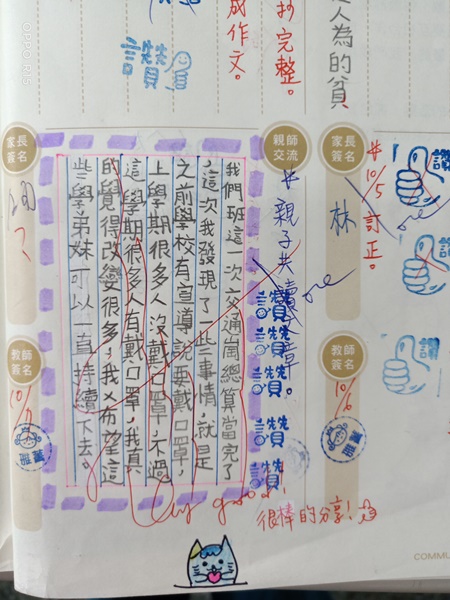 人為的貧
抄完整。
成作文。
讚
讚
讚
讚
#10/5訂正。
家長簽名
林
教師簽名
10/6
親師交流
#親子共讀文章。
讚
讚
讚
讚
讚
我們班這一次交通崗總算當完了
，這次我發現了一些事情，就是
之前學校有宣導說要戴口罩，
上學期很多人沒戴口罩，不過
這學期很多人有戴口罩，我真
的覺得改變很多，我希望這
些學弟妹可以一直持續下去。
家長簽名
教師簽名
good!
很棒的分享!
COMMU